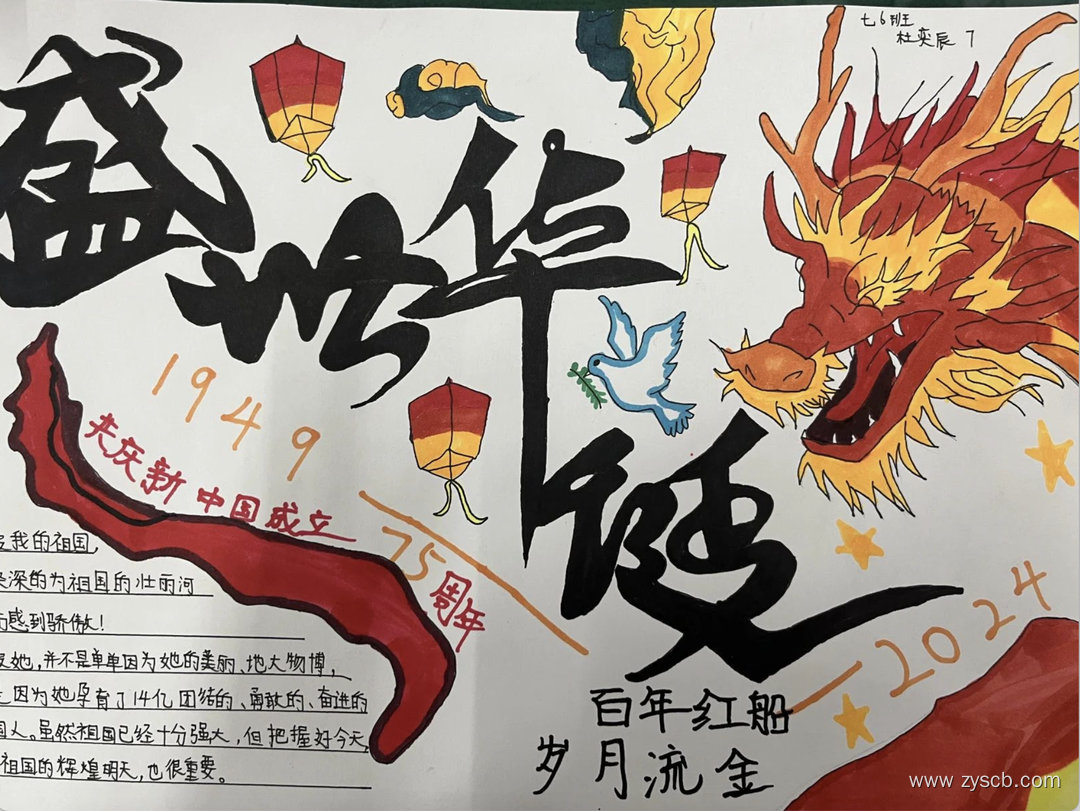 七6班
杜奕辰 7
盛世华诞
1949
共庆新中国成立
75周年
2024
我的祖国,
深的为祖国的壮丽河
感到骄傲!
她,并不是单单因为她的美丽、地大物博,
因为她孕育了14亿团结的、勇敢的、奋进的
国人。虽然祖国已经十分强大,但把握好今天,
祖国的辉煌明天,也很重要。
百年红船
岁月流金
www.zyscb.com